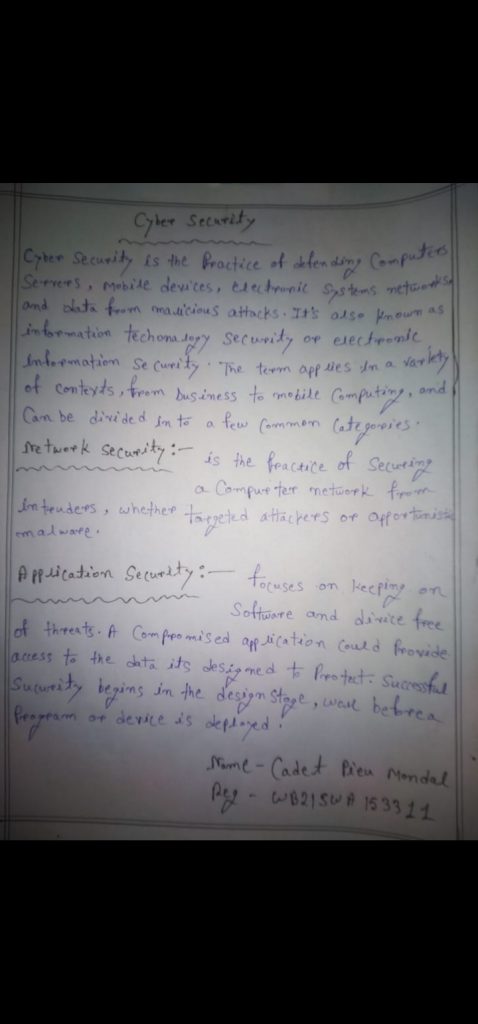 Cyber Security
Cyber Security is the Practice of defending Computers
Servers, mobile devices, electronic systems networks,
and data from malicious attacks. It's also known as
information techonalogy security or electronic
information security. The term applies in a variety
of contexts, from business to mobile computing, and
Can be divided in to a few Common Categories.
Network security:-
is the practice of Securing
a Computer network from
intruders, whether targeted attackers or opportunistic
malware.
Application Security:-
focuses on keeping on
Software and divice free
of threats. A Compromised application could Provide
access to the data its designed to Protect. Successful
Sucurity begins in the design stage, well before a
Program or device is deployed.
Name - Cadet Pieu Mondal
Reg - WB21SWA153311